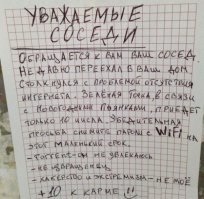 УВАЖАЕМЫЕ
СОСЕДИ
ОБРАЩАЕТСЯ К ВАМ ВАШ СОСЕД.
НЕДАВНО ПЕРЕЕХАЛ В ВАШ ДОМ.
СТОЛКНУЛСЯ С ПРОБЛЕМОЙ ОТСУТСТВИЯ
ИНТЕРНЕТА. ЗЕЛЁНАЯ ТОЧКА, В СВЯЗИ
С НОВОГОДНИМИ ПЬЯНКАМИ, ПРИЕДЕТ
ТОЛЬКО 10 ЧИСЛА. УБЕДИТЕЛЬНАЯ
ПРОСЬБА, СНИМИТЕ ПАРОЛИ С WiFi НА
ЭТОТ МАЛЕНЬКИЙ СРОК.
- ТОРРЕНТ-ОМ НЕ УВЛЕКАЮСЬ
- НЕ ИЗВРАЩЕНЕЦ
- ХАКЕРСТВО И ЭКСТРЕМИЗМ - НЕ МОЁ
+10 К КАРМЕ